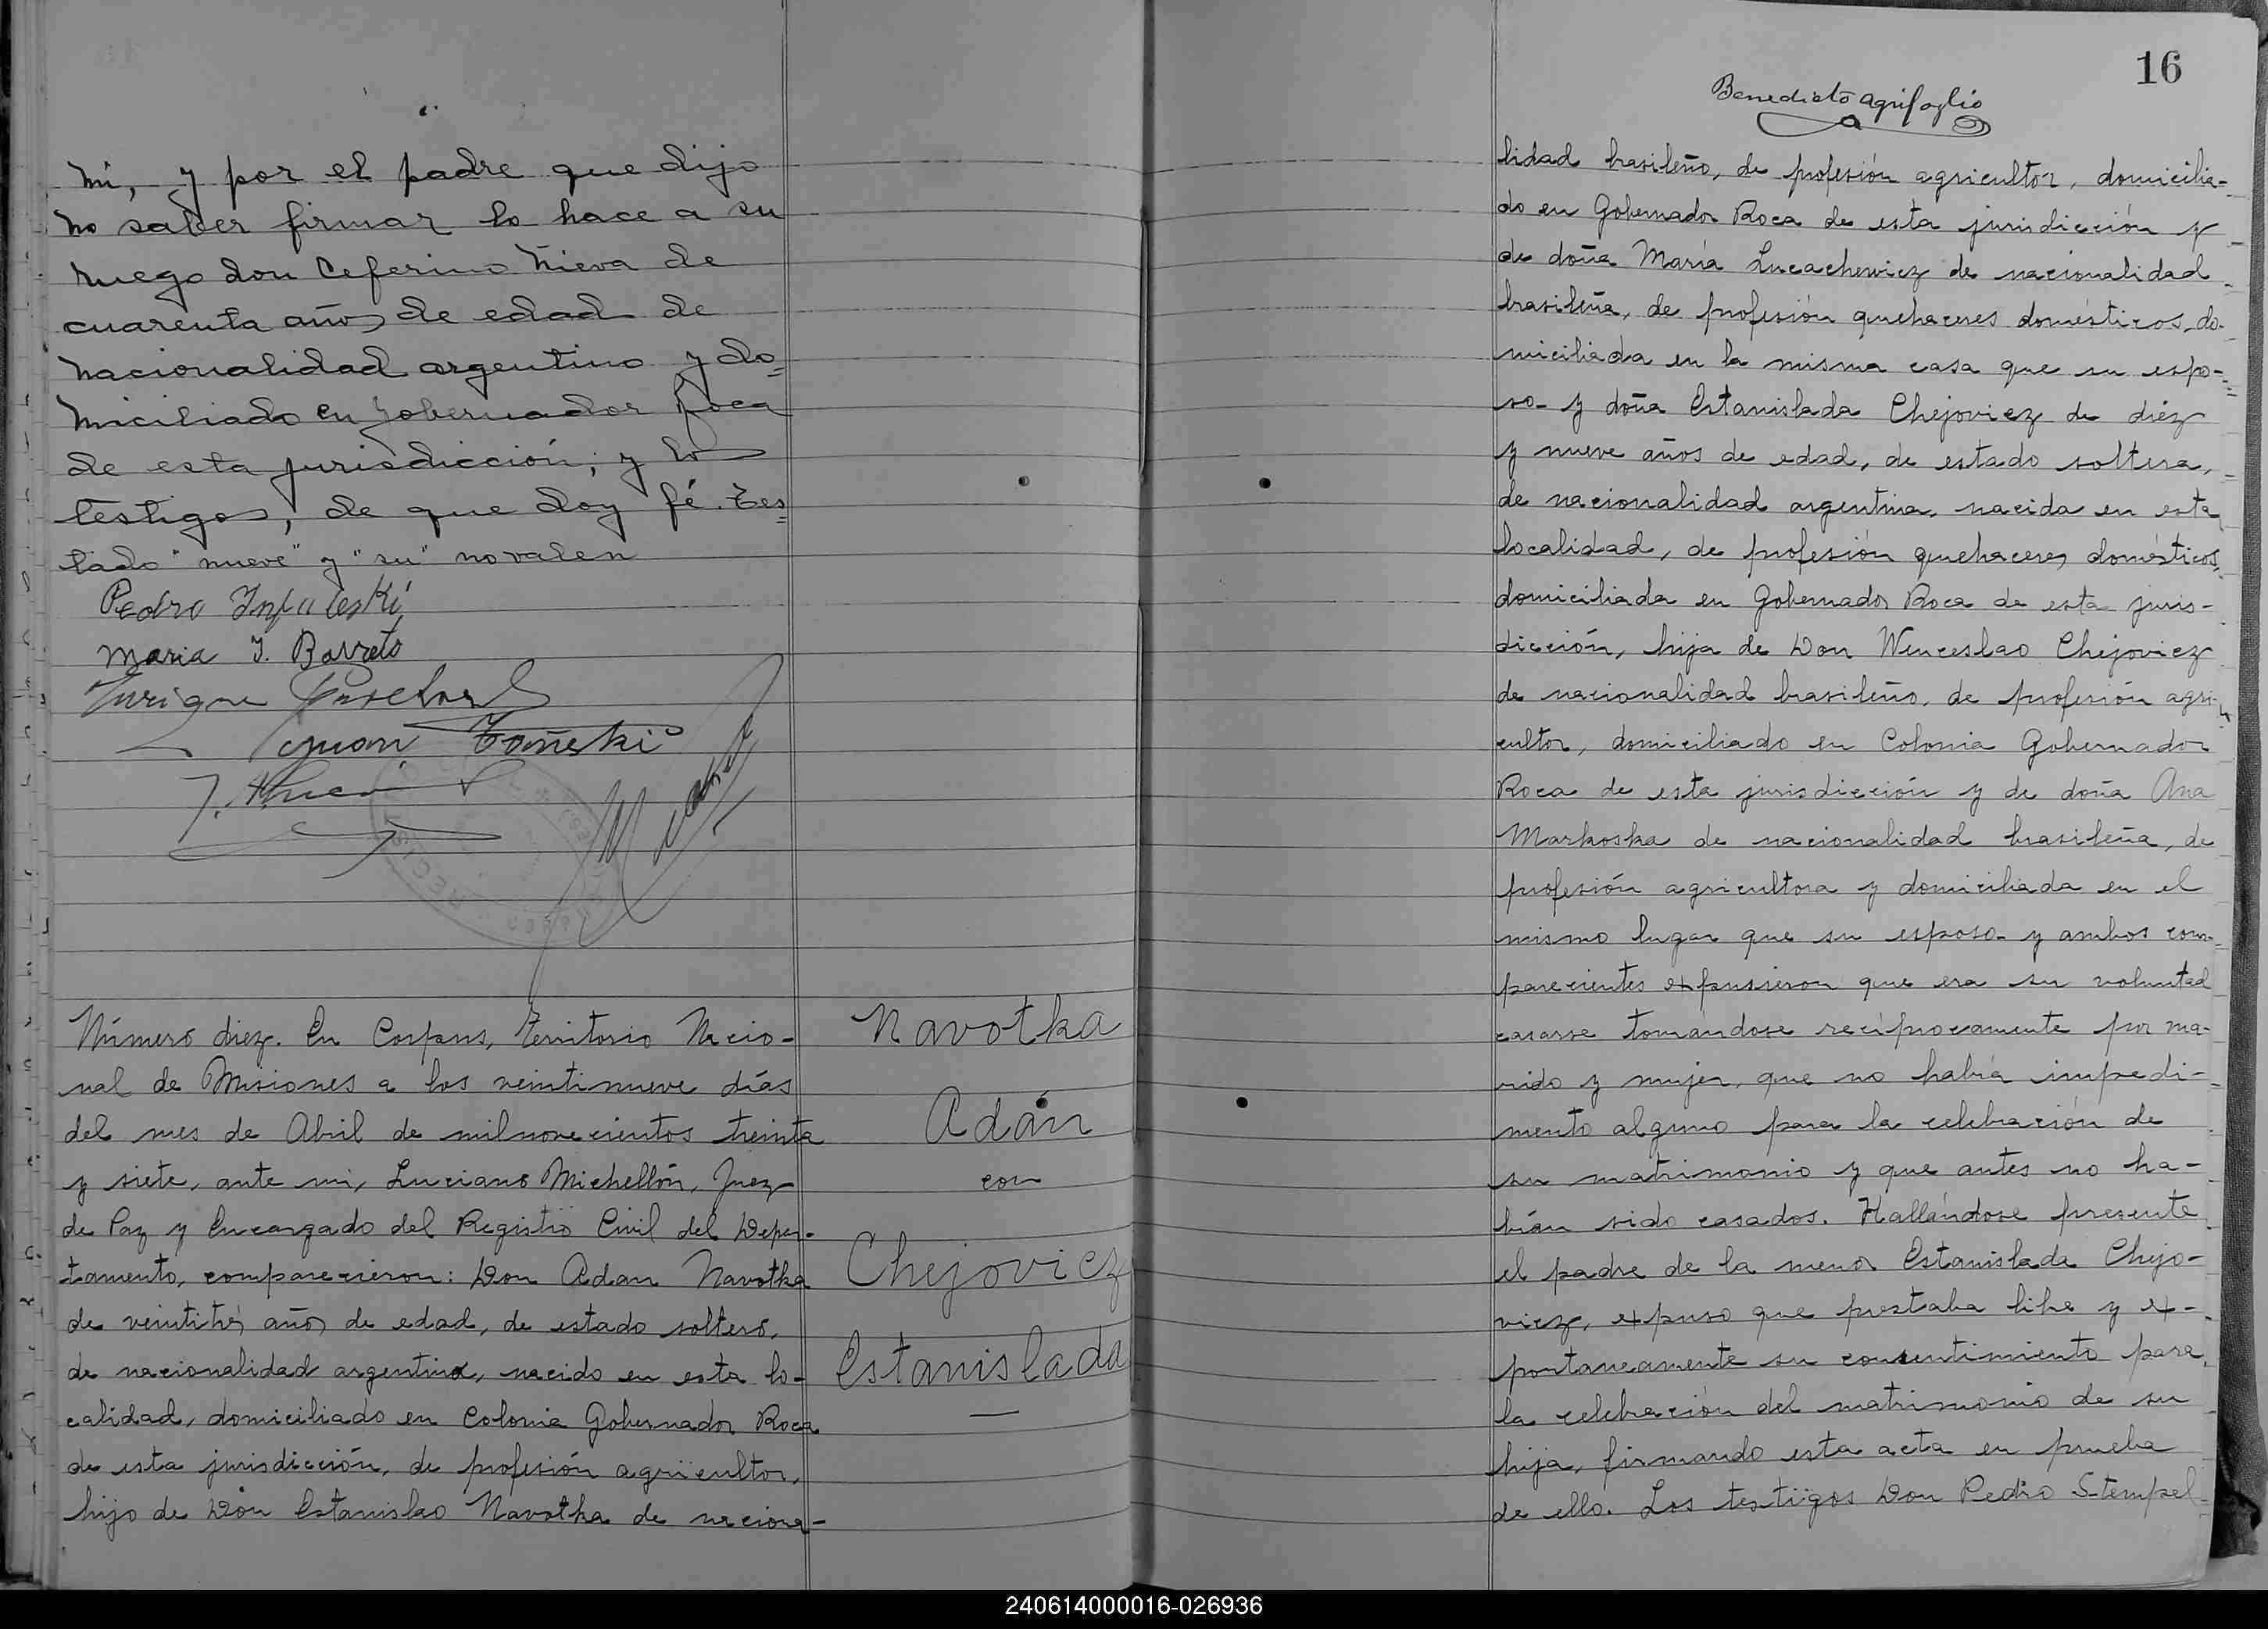 mí, y por el padre que dijo
no saber firmar lo hace a su
ruego don Ceferino Nieva de
cuarenta años de edad de
nacionalidad argentino y do=
miciliado en Gobernador Roca
de esta jurisdicción; y los
testigos, de que doy fé. Tes=
tado "nueve" y "su" no valen
Pedro
Maria I. Barreto
Enrique
Juan
Número diez. En Corpus, Territorio Nacio-
nal de Misiones a los veintinueve días
del mes de Abril de mil novecientos treinta
y siete, ante mi, Luciano Michellón, Juez
de Paz y Encargado del Registro Civil del Depar-
tamento, comparecieron: Don Adan Navotka
de veintitrés años de edad, de estado soltero,
de nacionalidad argentina, nacido en esta lo-
calidad, domiciliado en Colonia Gobernador Roca
de esta jurisdicción, de profesión agricultor,
hijo de Don Estanislao Navotka de naciona-
Navotka
Adán
con
Chejoviez
Estanislada
—
16
Benedicto Agrifoglio
lidad brasileño, de profesión agricultor, domicilia-
do en Gobernador Roca de esta jurisdicción y
de doña María Lucachewiez de nacionalidad
brasileña, de profesión quehaceres domésticos, do-
miciliada en la misma casa que su espo-
so- y doña Estanislada Chejoviez de diéz
y nueve años de edad, de estado soltera,
de nacionalidad argentina, nacida en esta
localidad, de profesión quehaceres domésticos,
domiciliada en Gobernador Roca de esta juris-
dicción, hija de Don Wenceslao Chejoviez
de nacionalidad brasileño, de profesión agri-
cultor, domiciliado en Colonia Gobernador
Roca de esta jurisdicción y de doña Ana
Markoska de nacionalidad brasileña, de
profesión agricultora y domiciliada en el
mismo lugar que su esposo- y ambos com-
parecientes expusieron que era su voluntad
casarse tomándose recíprocamente por ma-
rido y mujer, que no había impedi-
mento alguno para la celebración de
su matrimonio y que antes no ha-
bían sido casados. Hallándose presente
el padre de la menor Estanislada Chejo-
viez, expuso que prestaba libre y ex-
pontaneamente su consentimiento para
la celebración del matrimonio de su
hija, firmando esta acta en prueba
de ello. Los testigos Don Pedro Stempel-
240614000016-026936